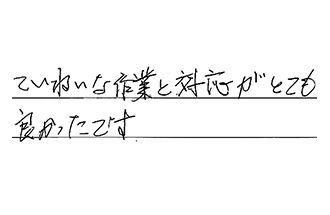 ていねいな作業と対応がとても
良かったです